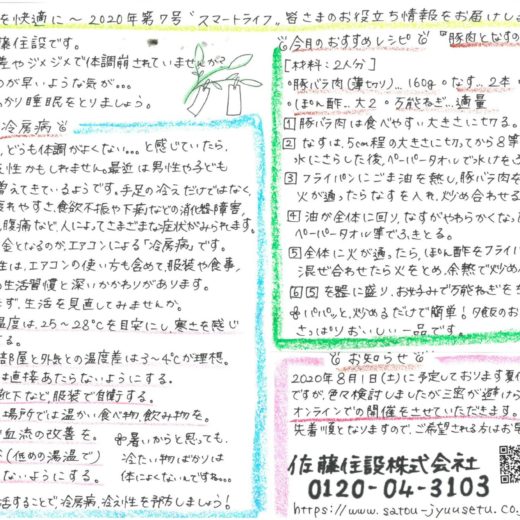 を快適に～2020年第7号 "スマートライフ" 皆さまのお役立ち情報をお届けしま
藤住設です。
差やジメジメで体調崩されていませんか?
のが早いような気が…。
っかり睡眠をとりましょう。
冷房病
、どうも体調がよくない…と感じていたら、
性かもしれません。最近は男性や子ども
増えてきているようです。手足の冷えだけではなく、
れやすさ、食欲不振や下痢などの消化器障害、
腹痛など、人によってさまざまな症状がみられます。
となるのが、エアコンによる「冷房病」です。
性は、エアコンの使い方も含めて、服装や食事、
生活習慣と深いかかわりがあります。
ず、生活を見直してみませんか。
温度は、25～28℃を目安にし、寒さを感じ
る。
部屋と外気との温度差は3～4℃が理想。
は直接あたらないようにする。
靴下など、服装で自衛する。
場所では温かい食べ物、飲み物を。
血流の改善を。
(低めの湯温で)
ないようにする。
暑いからと思っても、
冷たい物ばかりは
体によくないんですね…。
活することで、冷房病、冷え性を防ぎましょう!
今月のおすすめレシピ『豚肉となすの
[材料:2人分]
・豚バラ肉(薄切り)…160g ・なす…2本
・ぽん酢…大2 ・万能ねぎ…適量
1 豚バラ肉は食べやすい大きさに切る。
2 なすは、5cm程の大きさに切ってから8等
水にさらした後、ペーパータオルで水けを
3 フライパンにごま油を熱し、豚バラ肉を
火が通ったらなすを入れ、炒め合わせる
4 油が全体に回り、なすがやわらかくなっ
ペーパータオル等でふきとる。
5 全体に火が通ったら、ぽん酢をフライパ
混ぜ合わせたら火をとめ、余熱で炒め
6 5を器に盛り、お好みで万能ねぎを
パパッと、炒めるだけで簡単!夕食のお
さっぱりおいしい一品です。
お知らせ
2020年8月1日(土)に予定しております夏
ですが、色々検討しましたが三密が避けら
オンラインでの開催をさせていただきます。
先着順となりますので、ご希望される方はお早
佐藤住設株式会社
0120-04-3103
https://www.satou-jyuusetu.co.